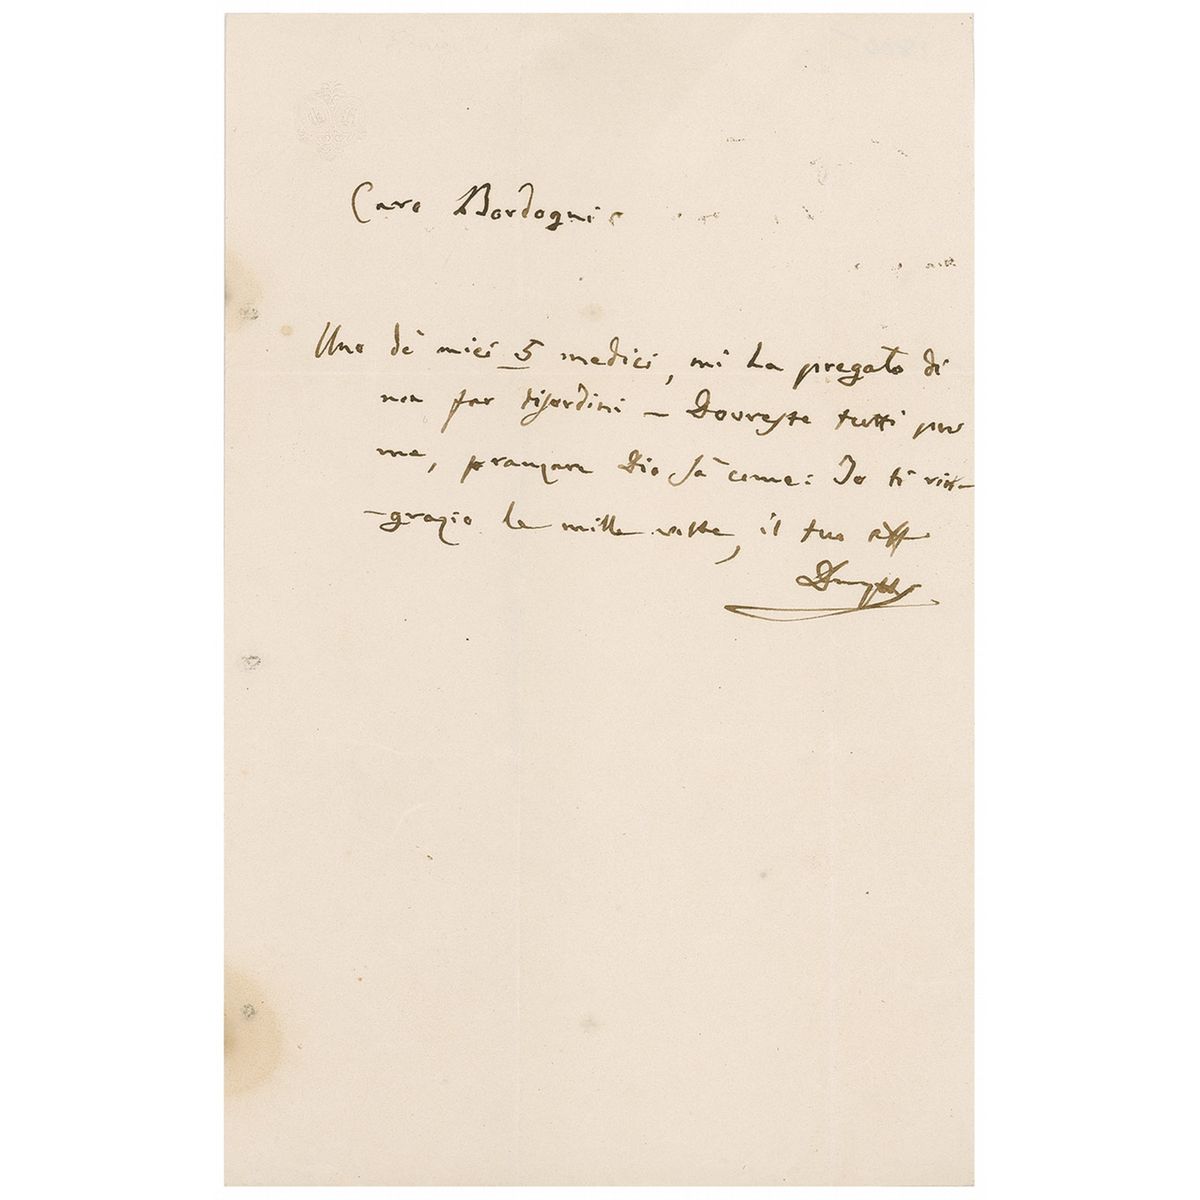 Caro Bordogni
Uno de' miei 5 medici, mi ha pregato di
non far disordini – Dovreste tutti per
me, pranzare Dio sà come: Io ti rin-
-grazio le mille volte, il tuo aff
Donizetti